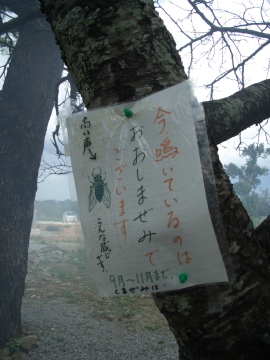 今鳴いているのは
おおしまぜみで
ございます
9月〜11月まで.
くまぜみは
高い声↘
こんな感じです。